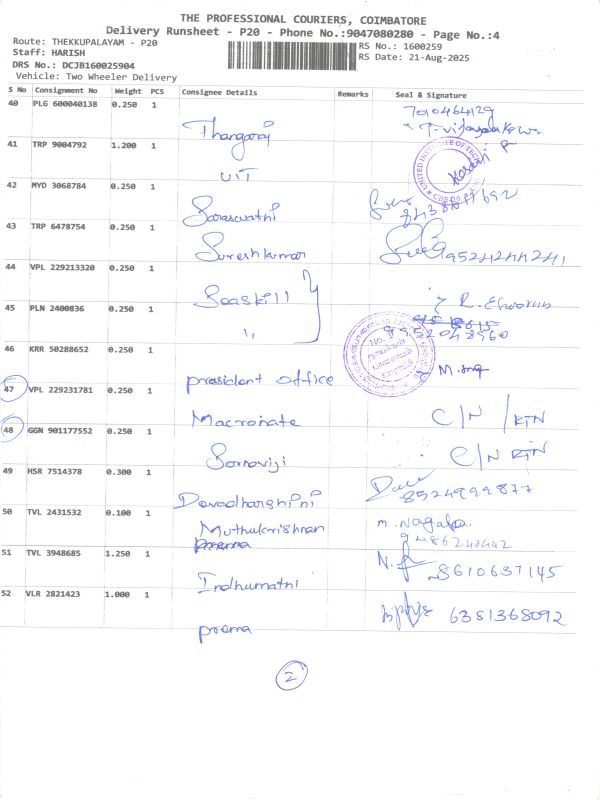 THE PROFESSIONAL COURIERS, COIMBATORE
Delivery Runsheet - P20 - Phone No.:9047080280 - Page No.:4
Route: THEKKUPALAYAM - P20
RS No.: 1600259
Staff: HARISH
RS Date: 21-Aug-2025
DRS No.: DCJB160025904
Vehicle: Two Wheeler Delivery
S No Consignment No Weight PCS Consignee Details Remarks Seal & Signature
40 PLG 600040138 0.250 1 7010464129
Thangaraj
41 TRP 9004792 1.200 1
UIT
UNITED INSTITUTE OF TECH
42 MYD 3068784 0.250 1
Saraswathi
43 TRP 6478754 0.250 1
Sureshkumar 9524244241
44 VPL 229213320 0.250 1
Seaskill
45 PLN 2400836 0.250 1
"
9952048960
46 KRR 50288652 0.250 1
president office
47 VPL 229231781 0.250 1 C/N
Macronate
48 GGN 901177552 0.250 1 C/N
49 HSR 7514378 0.300 1
Devadharshini 8524999877
50 TVL 2431532 0.100 1
Muthukrishnan
prema
9486242442
51 TVL 3948685 1.250 1 8610637145
Indhumathi
52 VLR 2821423 1.000 1 6381368092
prema
2